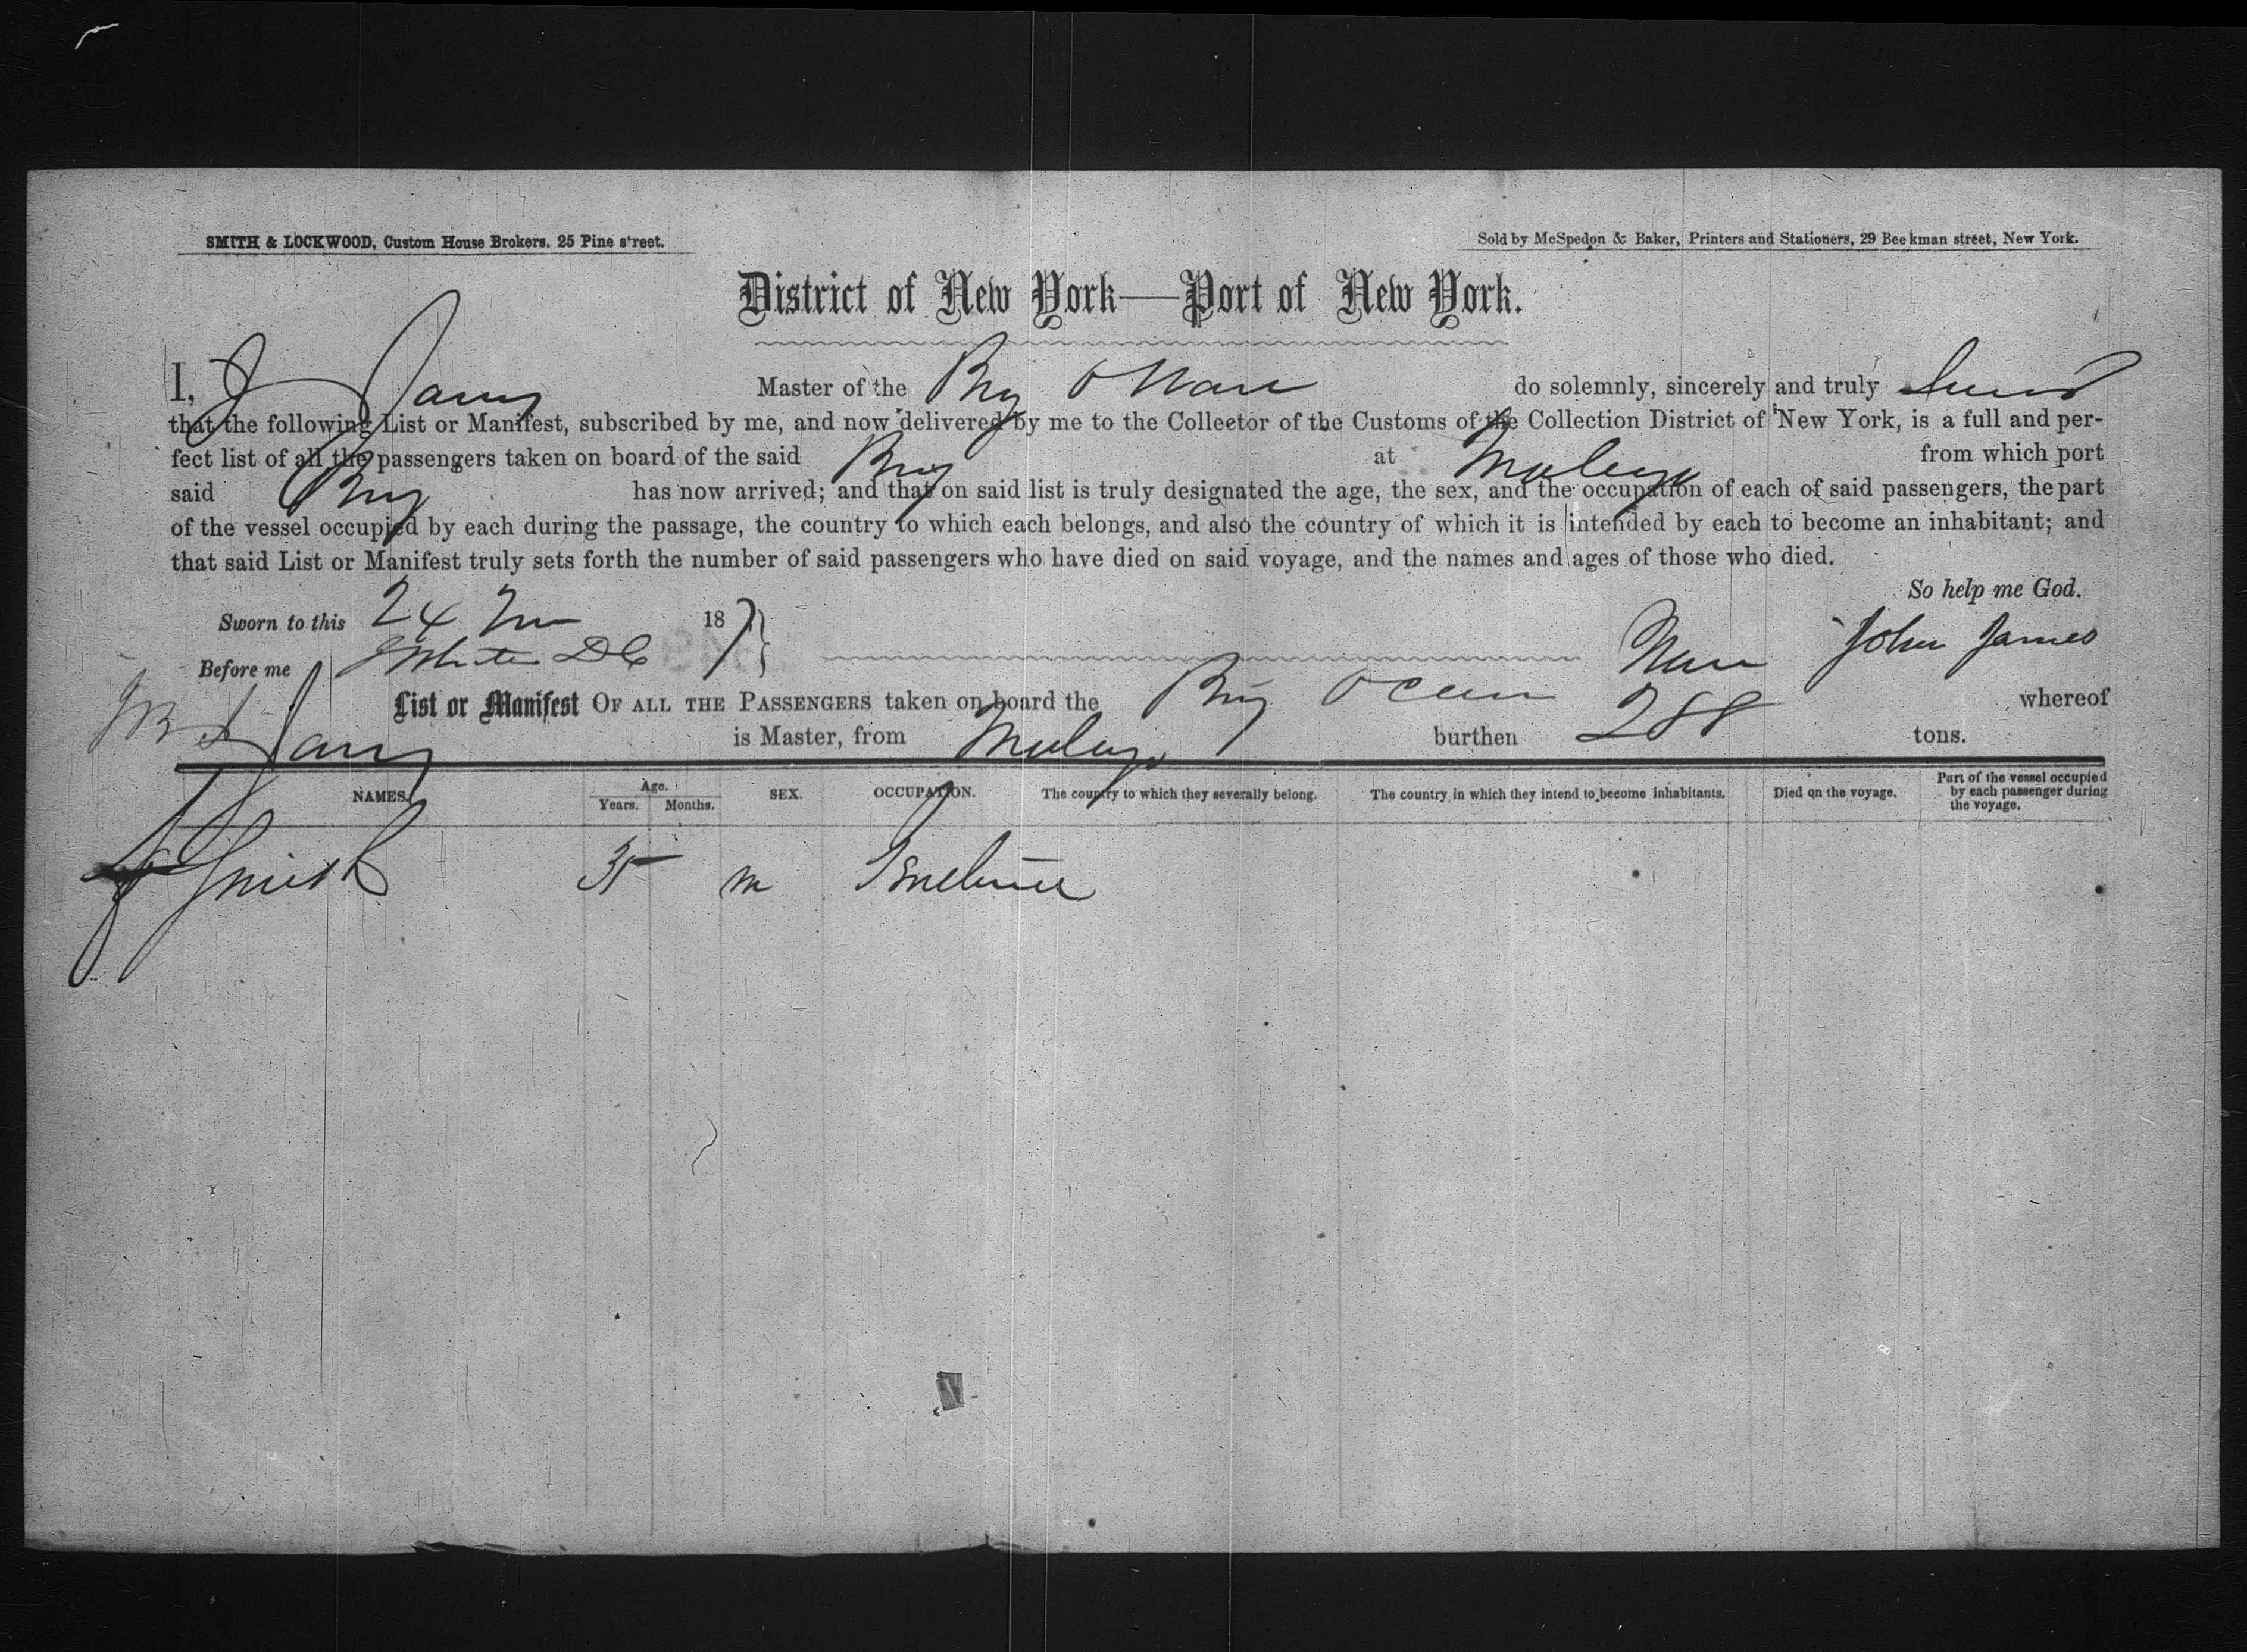 SMITH & LOCKWOOD, Custom House Brokers. 25 Pine street.
Sold by McSpedon & Baker, Printers and Stationers, 29 Beekman street, New York.
District of New York—Port of New York.
I, J James Master of the Brig do solemnly, sincerely and truly swear
that the following List or Manifest, subscribed by me, and now delivered by me to the Collector of the Customs of the Collection District of New York, is a full and per-
fect list of all the passengers taken on board of the said Brig at from which port
said Brig has now arrived; and that on said list is truly designated the age, the sex, and the occupation of each of said passengers, the part
of the vessel occupied by each during the passage, the country to which each belongs, and also the country of which it is intended by each to become an inhabitant; and
that said List or Manifest truly sets forth the number of said passengers who have died on said voyage, and the names and ages of those who died.
So help me God.
Sworn to this 24 18
Before me White DC John James
List or Manifest OF ALL THE PASSENGERS taken on board the Brig Ocean whereof
J James is Master, from burthen 288 tons.
NAMES. Age. Years. Months. SEX. OCCUPATION. The country to which they severally belong. The country in which they intend to become inhabitants. Died on the voyage. Part of the vessel occupied by each passenger during the voyage.
Smith 35 m